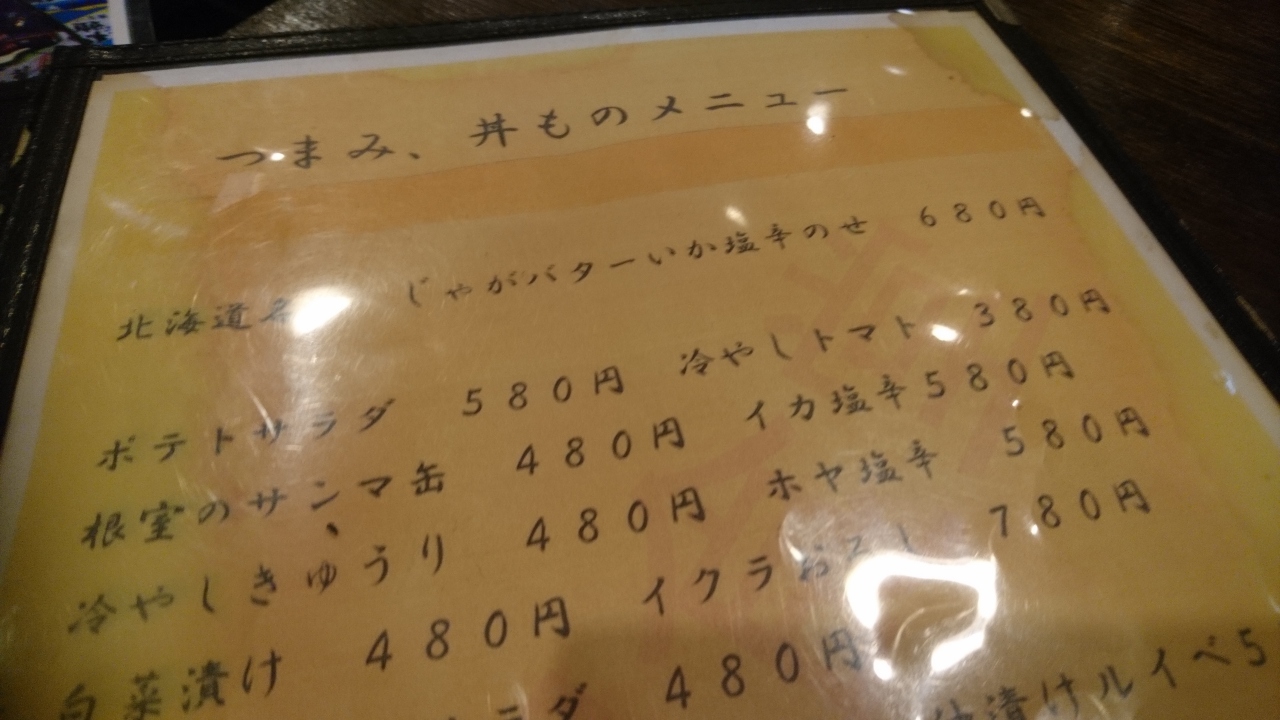 つまみ、丼ものメニュー
北海道名 じゃがバターいか塩辛のせ 680円
ポテトサラダ 580円 冷やしトマト 380円
根室のサンマ缶 480円 イカ塩辛580円
冷やしきゅうり 480円 ホヤ塩辛 580円
白菜漬け 480円 イクラおろし 780円
ラダ 480円 漬けルイベ5